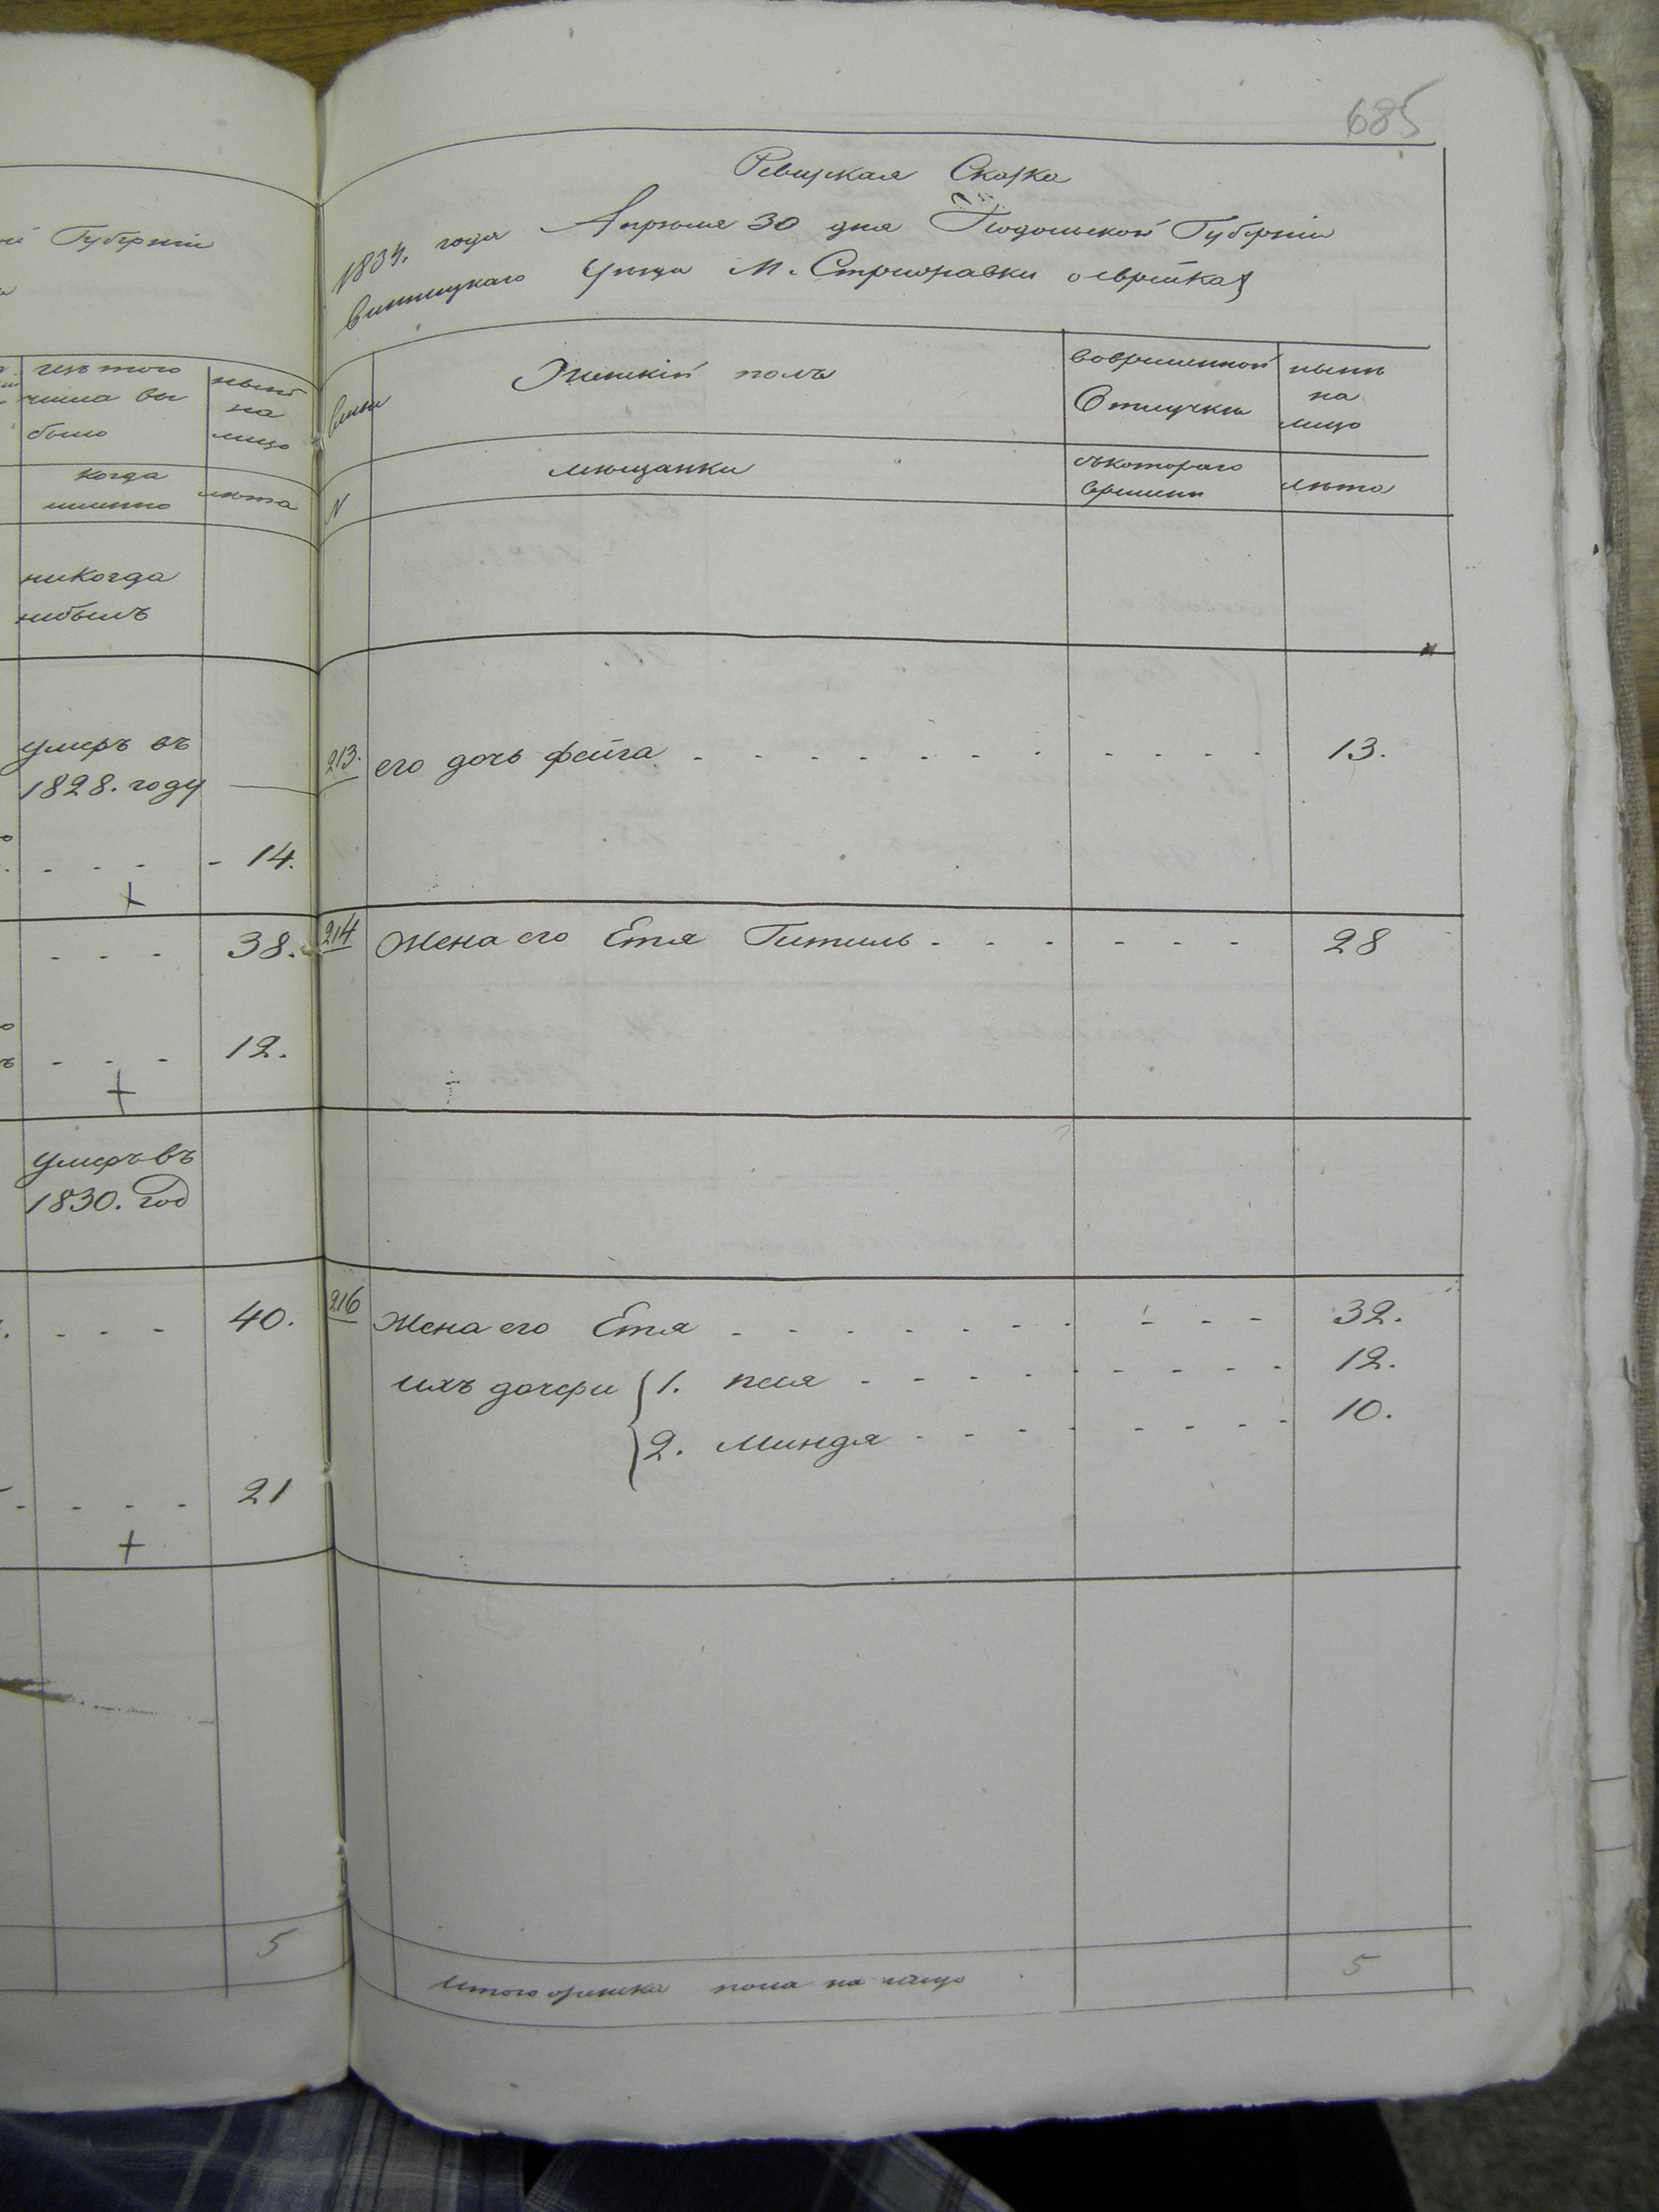 й Губерніи
изъ того
числа вы
было
нынѣ
на
лицо
когда
именно
лѣта
никогда
небылъ
умеръ въ
1828. году
14.
38.
12.
умеръ въ
1830. год
40.
21
5
685
Ревизская Сказка
1834. года Апрѣля 30 дня Подольской Губерніи
Винницкаго уѣзда М. Стрижавки о еврейкахъ
Женскій полъ
вовременной
Отлучки
нынѣ
на
лицо
N
мѣщанки
съкотораго
времени
лѣта
213. его дочь фейга 13.
214 Жена его Етя Гитель 28
216 Жена его Етя 32.
ихъ дочери 1. песя 12.
2. Миндя 10.
Итого женска пола на лицо 5